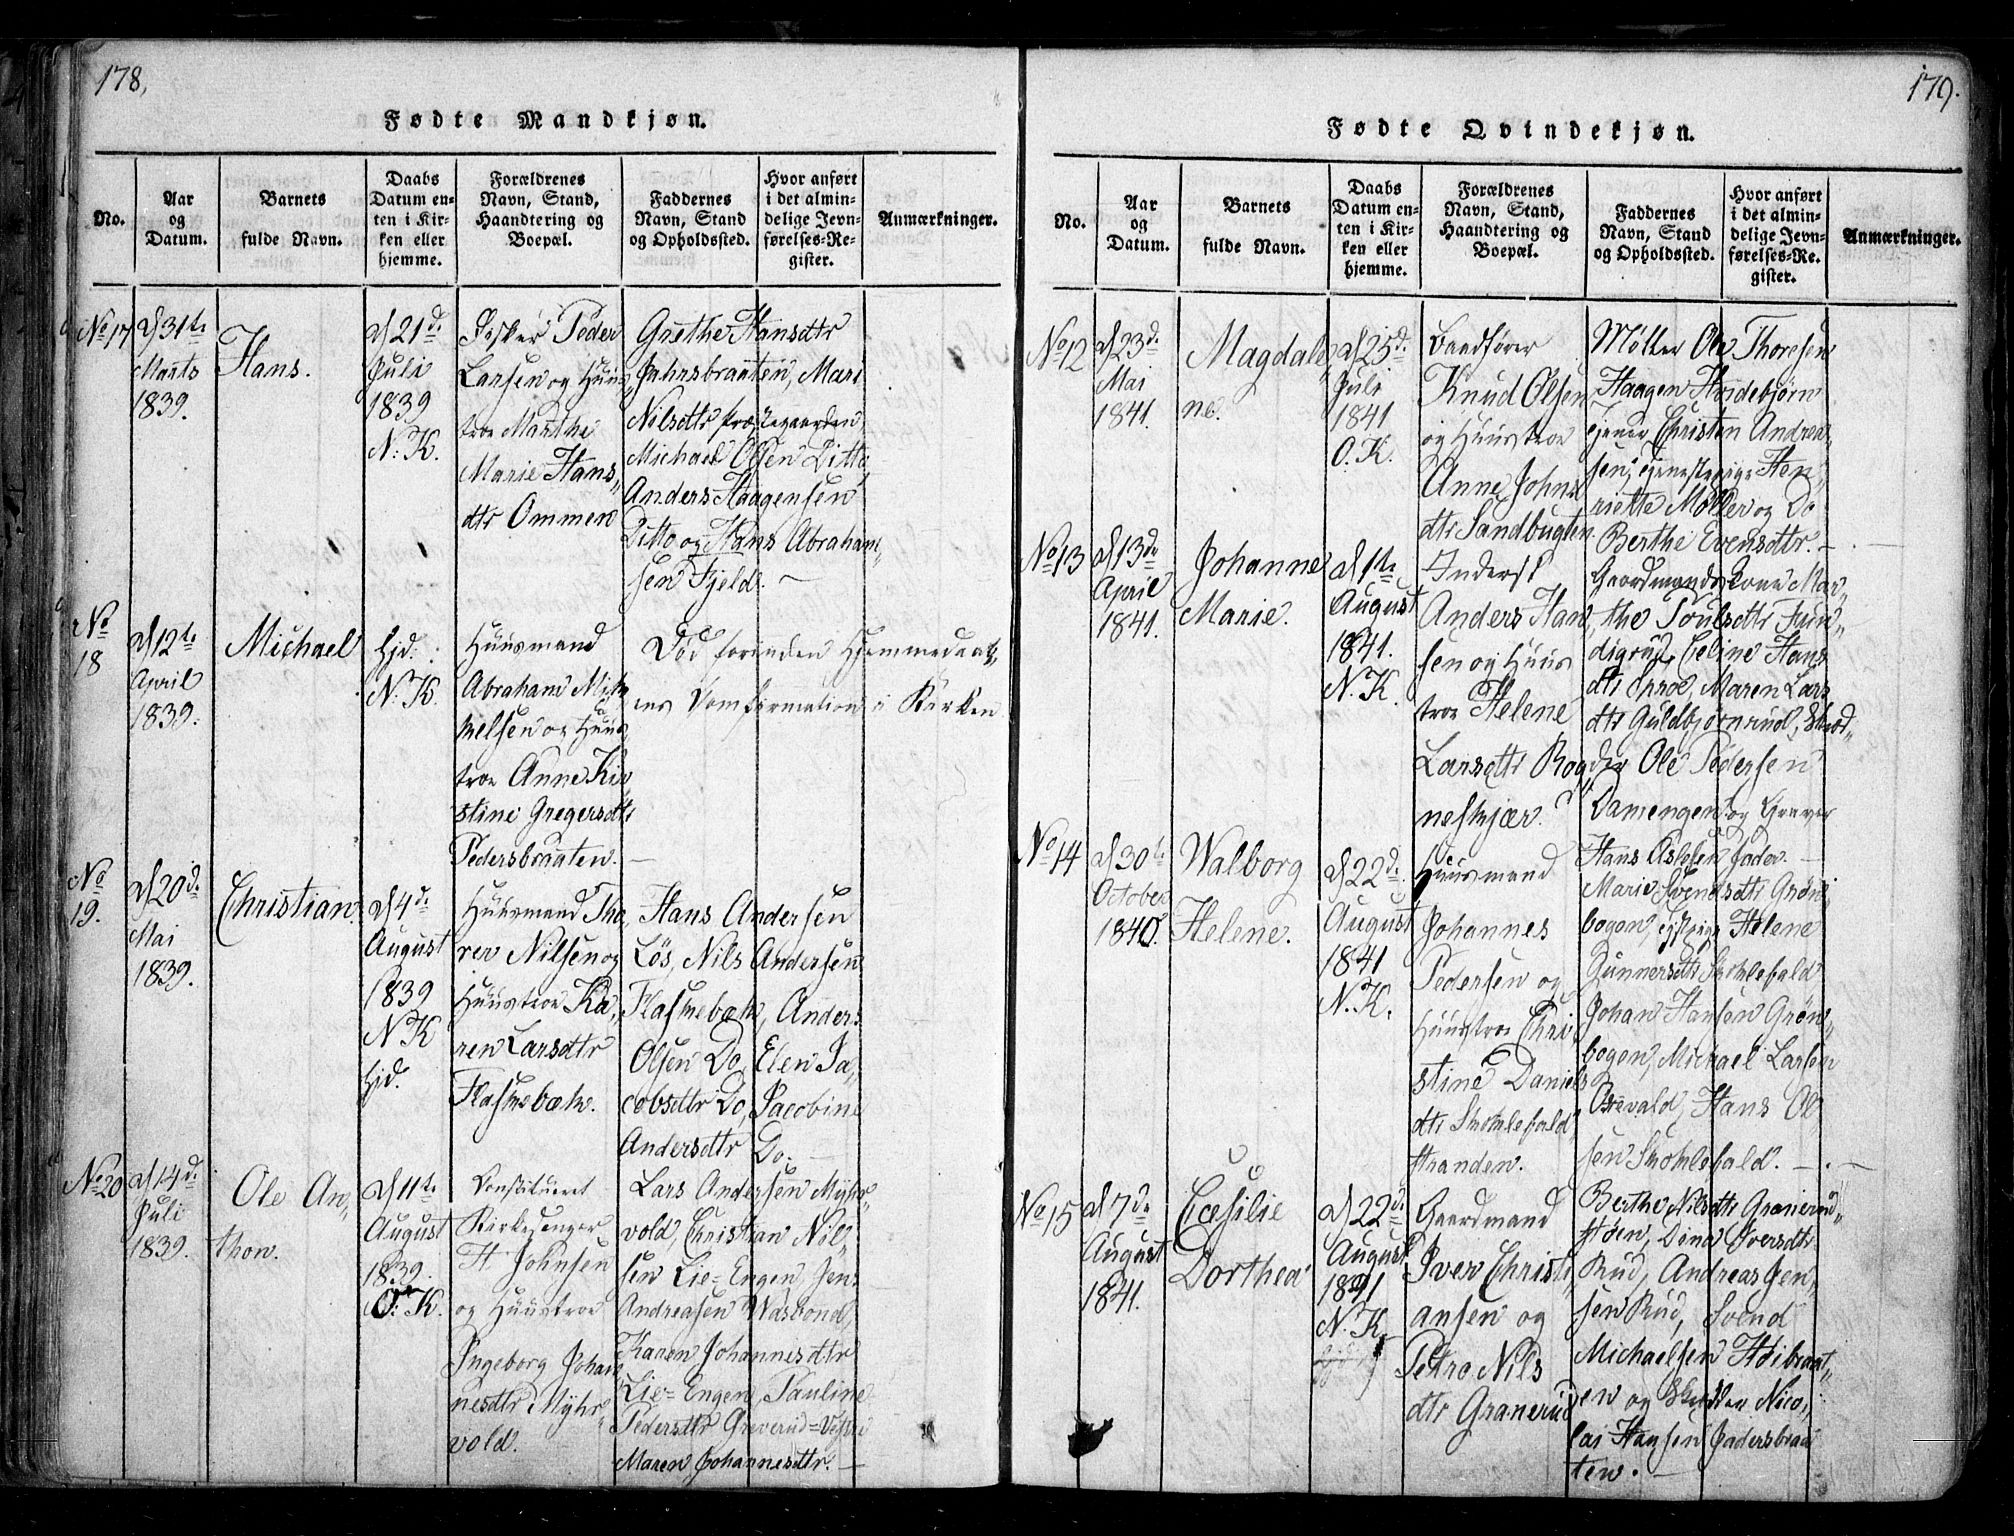 178,
Fødte Mandkjøn.
No.
Aar
og
Datum.
Barnets
fulde Navn.
Daabs
Datum en-
ten i Kir-
ken eller
hjemme.
Forældrenes
Navn, Stand,
Haandtering og
Boepæl.
Faddernes
Navn, Stand
og Opholdssted.
Hvor anført
i det almin-
delige Jevn-
førelses-Re-
gister.
Anmærkninger.
No 17
d 31te
Marts
1839.
Hans.
d 21d.
Juli
1839
N: K.
Fisker Peder
Larsen og Huus
troe Marthe
Marie Hans„
dtr Ommen
Grethe Hansdtr
Jahrsbraaten, Mari
Nilsdtr præstegaarden
Michael Olsen Ditto,
Anders Haagensen
Ditto og Hans Abraham„
sen Fjeld. —
No
18
d 12te
April
1839.
Michael
Hjd.
N. K.
Huusmand
Abraham Mik
kelsen og Huus
troe Anne Kir
stine Gregersdtr
Pedersbraaten. —
Død forinden Hjemmedaab„
ens Comfirmation i Kirken
No
19.
d 20d.
Mai
1839.
Christian.
d 4d.
August
1839
N K
Hjd.
Huusmand Tho„
rer Nilsen og
Huustroe Ka„
ren Larsdtr
Flaskebæk.
Hans Andersen
Løs, Nils Andersen
Flaskebæk, Anders
Olsen Do, Elen Ja„
cobsdtr Do, Jacobine
Andersdtr Do. —
No 20
d 14d.
Juli
1839.
Ole An„
thon.
d 11te
August
1839.
O: K.
Constitueret
Kirkesanger
H Johnsen
og Huustroe
Ingeborg Johan
nesdtr Myhr„
vold.
Lars Andersen Myhr„
vold, Christian Nil„
sen Lie=Engen, Jens
Andreasen Wasbond,
Karen Johannesdtr
Lie=Engen, Pauline
Pedersdtr Greverud=Vestre
Maren Johannesdtr. —
179.
Fødte Qvindekjøn.
No.
Aar
og
Datum.
Barnets
fulde Navn.
Daabs
Datum en-
ten i Kir-
ken eller
hjemme.
Forældrenes
Navn, Stand,
Haandtering og
Boepæl.
Faddernes
Navn, Stand
og Opholdssted.
Hvor anført
i det almin-
delige Jevn-
førelses-Re-
gister.
Anmærkninger.
No 12
d 23d.
Mai
1841.
Magdale„
ne.
d 25d.
Juli
1841
O. K.
Baadfører
Knud Olsen
og Huustroe
Anne Johns
dtr Sandbugten
Møller Ole Thoresen
Haagen Hvidebjørn
Tjener Christen Andrea„
sen, tjenestepige Hen„
riette Møller og Do
Berthe Evensdtr. —
No 13
d 13de
April
1841.
Johanne
Marie.
d 1te
August
1841.
N. K.
Inderst
Anders Han
sen og Huus
troe Helene
Larsdtr Rog„
neskjær.
Gaardmandskone Mar„
the Poulsdtr Fun„
digrud, Celine Hans
dtr Oproe, Maren Lars
dtr Guldbjørnrud, Skræd„
der Ole Pedersen
Damengen og Graver
Hans Aslesen Fader. —
No 14
d 30te
October
1840.
Walborg
Helene.
d 22d.
August
1841
N. K.
Huusmand
Johannes
Pedersen og
Huustroe Chri„
stine Daniels
dtr Skoklefald
stranden.
Marie Svendsdtr Grøn„
bogen, tjstpige Helene
Gunnersdtr Skoklefald
Johan Hansen Grøn„
bogen, Michael Larsen
Hans Ol„
sen Skoklefald. —
No 15
d 7de
August
1841.
Cæsilie
Dorthea
d 22d.
August
1841
N. K
Gaardmand
Iver Christi„
ansen og
Petra Nils
dtr Granerud
Berthe Nilsdtr Granerud„
støen, Dina Iversdtr
Rud, Andreas Jen„
sen Rud, Svend
Michaelsen Høibraat„
en og Skrædder Nico„
lai Hansen Fadersbraa
ten. —